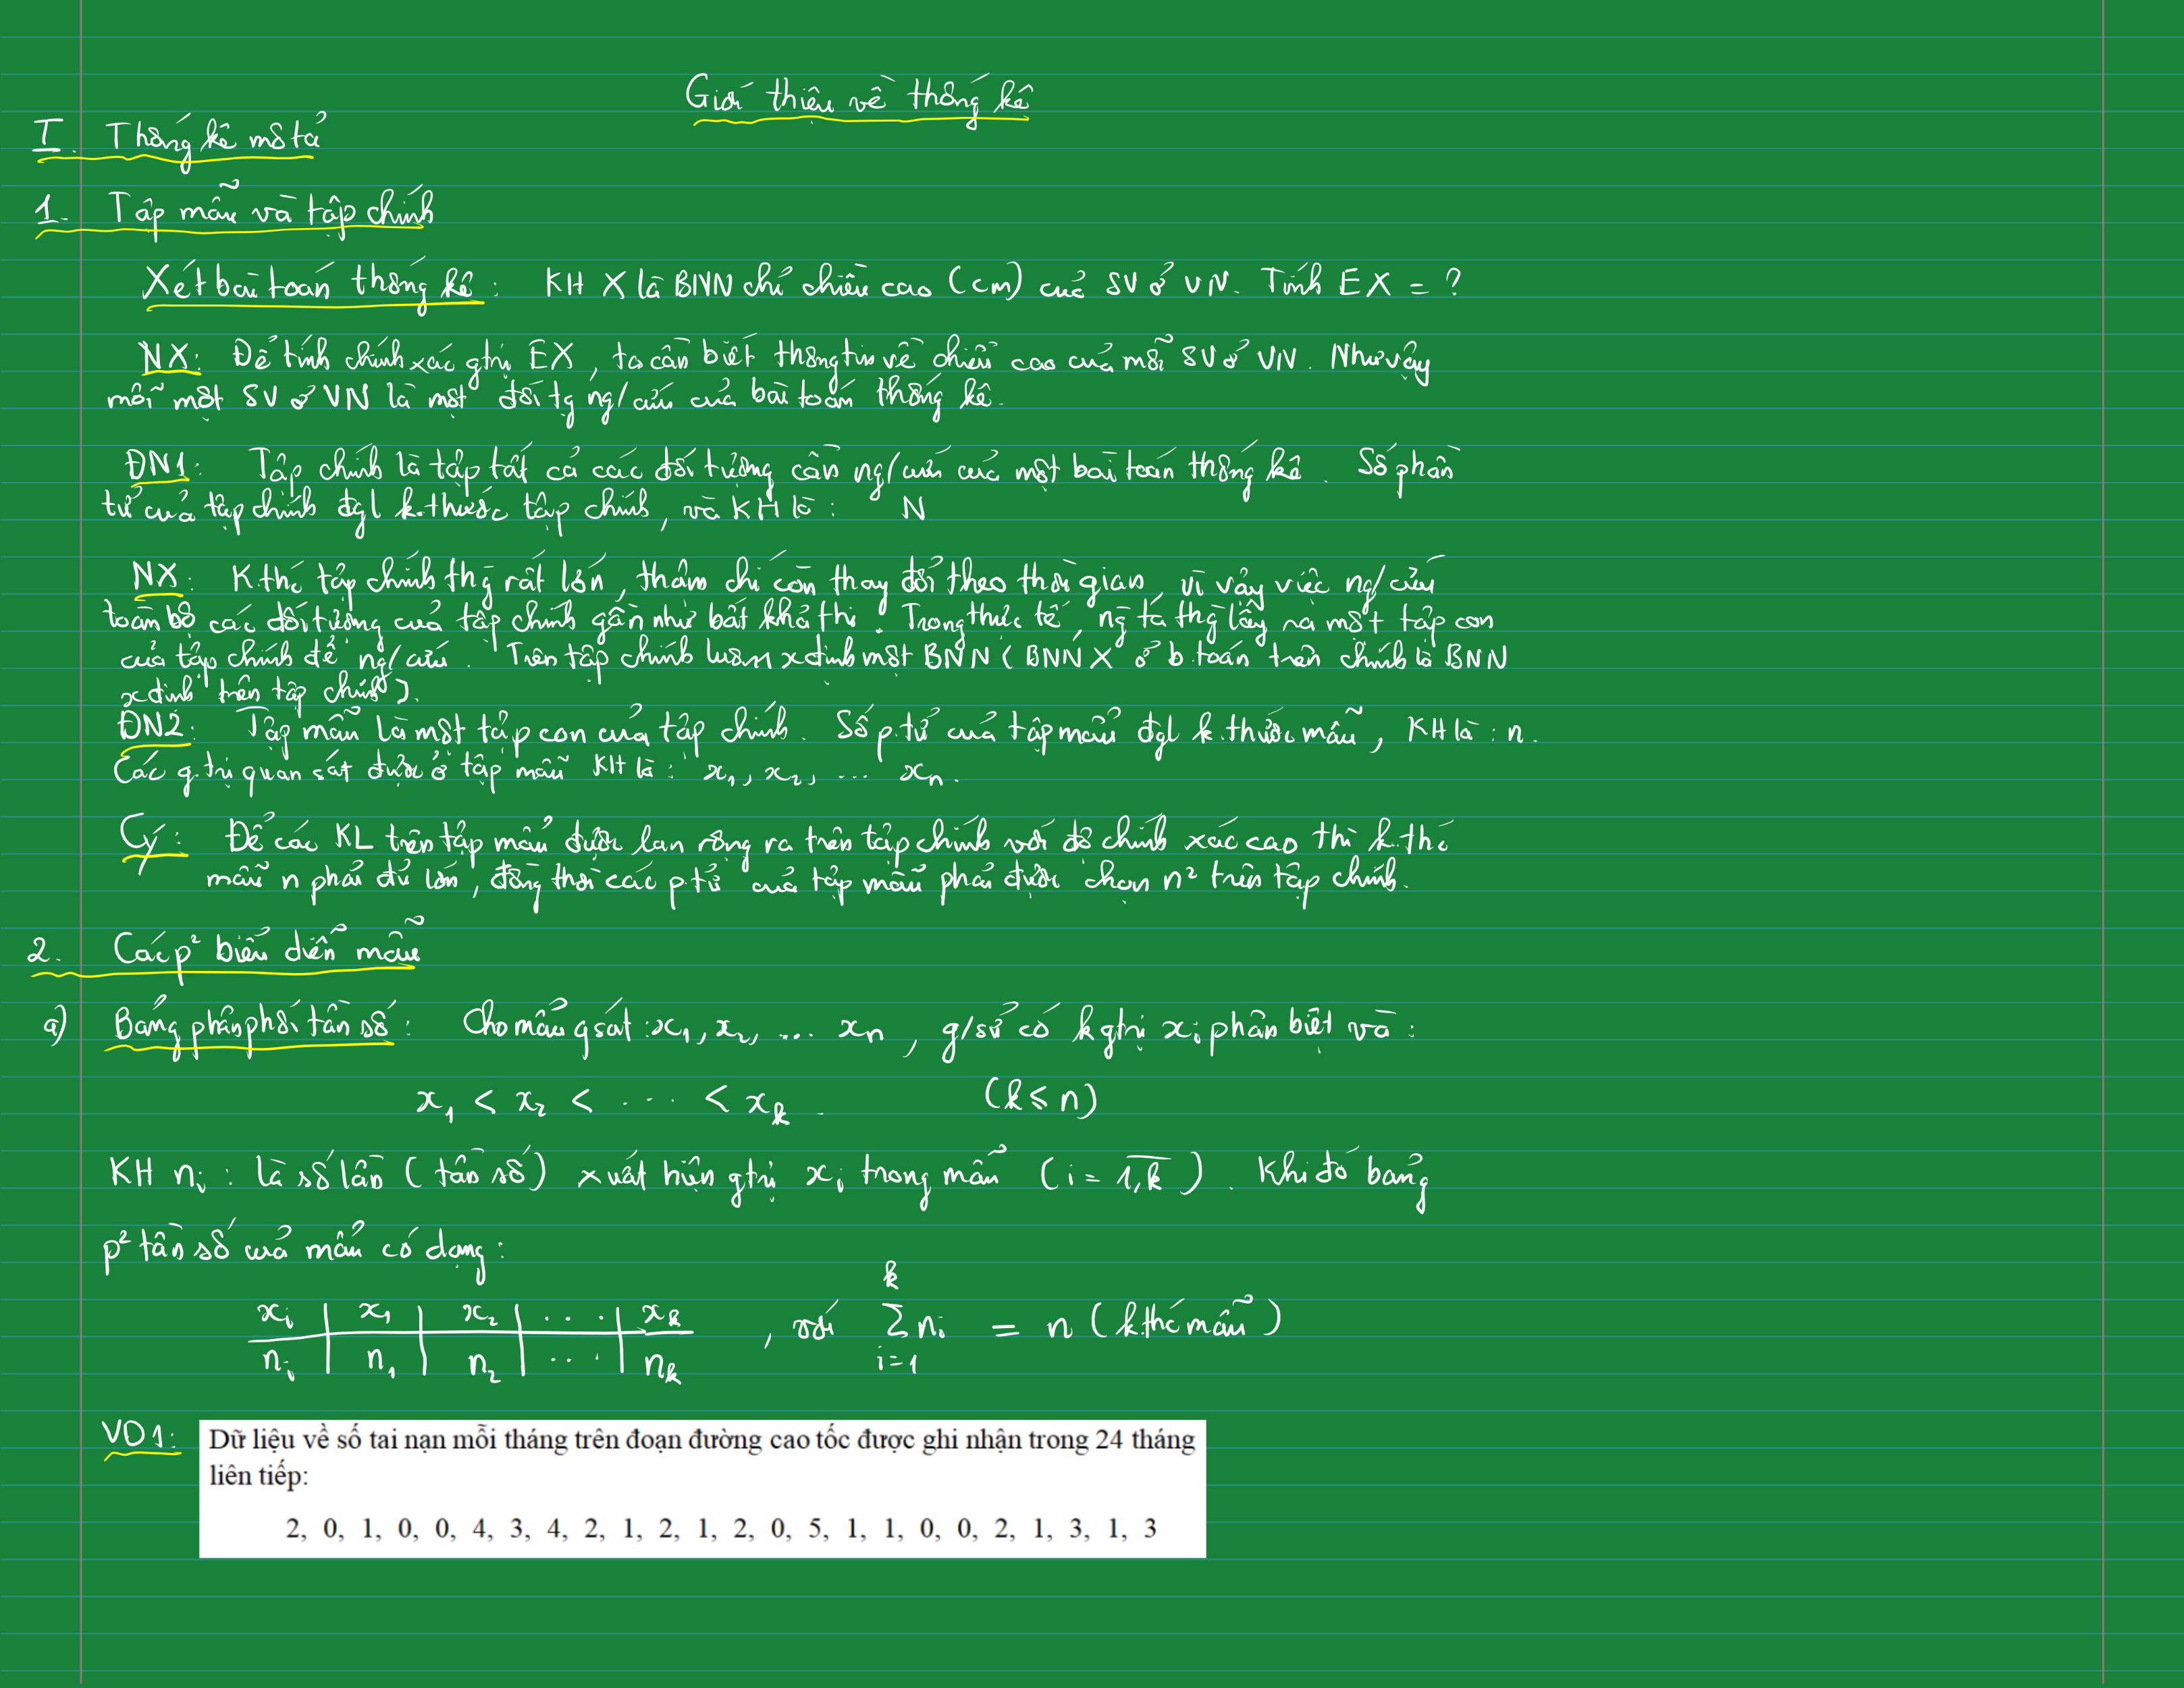 Giới thiệu về thống kê
I. Thống kê mô tả
1. Tập mẫu và tập chính
Xét bài toán thống kê: KH X là BNN chỉ chiều cao (cm) của SV ở VN. Tính EX = ?
NX: Để tính chính xác gtrị EX, ta cần biết thông tin về chiều cao của mỗi SV ở VN. Như vậy
mỗi một SV ở VN là một đối tg ng/cứu của bài toán thống kê.
ĐN1: Tập chính là tập tất cả các đối tượng cần ng/cứu của một bài toán thống kê. Số phần
tử của tập chính đgl k.thước tập chính, và KH là: N
NX: K.thc tập chính thg rất lớn, thậm chí còn thay đổi theo thời gian, vì vậy việc ng/cứu
toàn bộ các đối tượng của tập chính gần như bất khả thi. Trong thực tế, ng ta thg lấy ra một tập con
của tập chính để ng/cứu. Trên tập chính luôn xđịnh một BNN (BNN X ở b.toán trên chính là BNN
xđịnh trên tập chính).
ĐN2: Tập mẫu là một tập con của tập chính. Số p.tử của tập mẫu đgl k.thước mẫu, KH là: n.
Các g.trị quan sát được ở tập mẫu KH là: x₁, x₂, ... xₙ.
Cý: Để các KL trên tập mẫu được lan rộng ra trên tập chính với độ chính xác cao thì k.thc
mẫu n phải đủ lớn, đồng thời các p.tử của tập mẫu phải được chọn n² trên tập chính.
2. Các p² biểu diễn mẫu
a) Bảng phân phối tần số: Cho mẫu qsát: x₁, x₂, ... xₙ, g/sử có k gtrị xᵢ phân biệt và:
x₁ < x₂ < ... < xₖ. (k ≤ n)
KH nᵢ: là số lần (tần số) xuất hiện gtrị xᵢ trong mẫu (i = \overline{1,k}). Khi đó bảng
p² tần số của mẫu có dạng:
xᵢ | x₁ | x₂ | ... | xₖ
nᵢ | n₁ | n₂ | ... | nₖ , với \sum_{i=1}^{k} nᵢ = n (k.thc mẫu)
VD1: Dữ liệu về số tai nạn mỗi tháng trên đoạn đường cao tốc được ghi nhận trong 24 tháng
liên tiếp:
2, 0, 1, 0, 0, 4, 3, 4, 2, 1, 2, 1, 2, 0, 5, 1, 1, 0, 0, 2, 1, 3, 1, 3